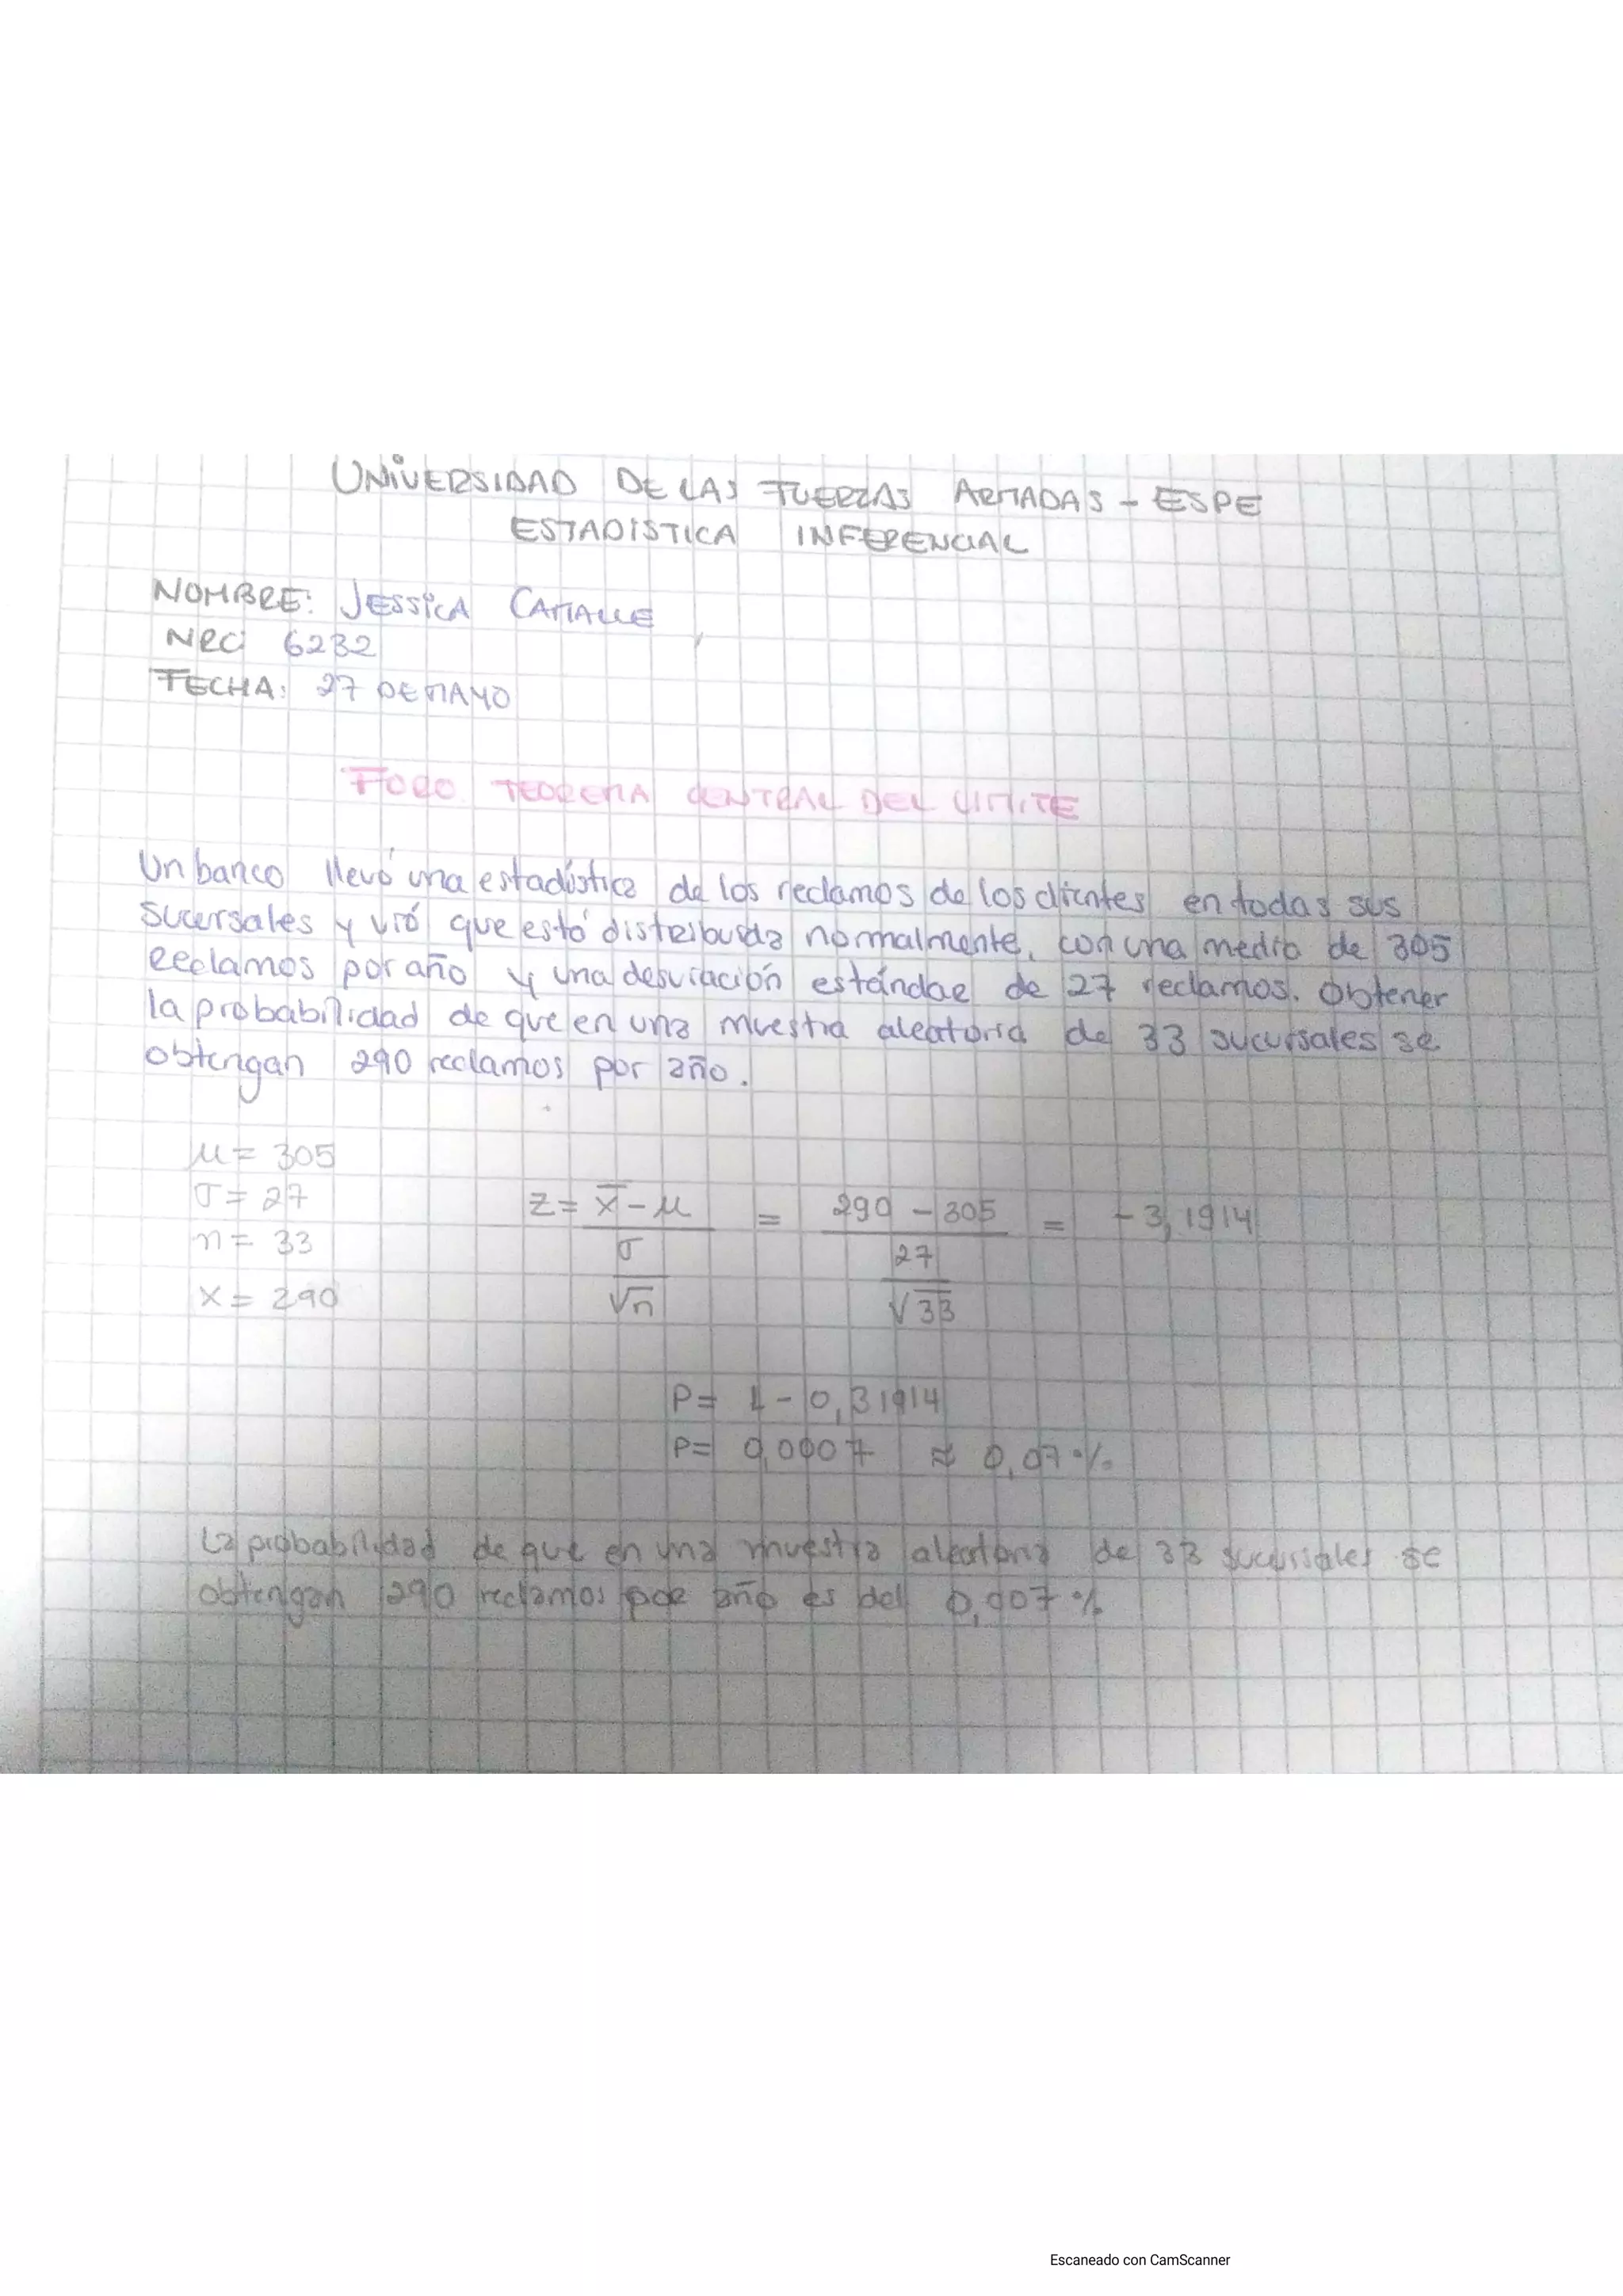 UNIVERSIDAD DE LAS FUERZAS ARMADAS - ESPE
ESTADISTICA INFERENCIAL
NOMBRE: JESSICA CAMALLE
NRC: 6232
FECHA: 27 DE MAYO
FORO TEOREMA CENTRAL DEL LIMITE
Un banco llevó una estadística de los reclamos de los clientes en todas sus
sucursales y vió que está distribuida normalmente, con una media de 305
reclamos por año y una desviación estándar de 27 reclamos. Obtener
la probabilidad de que en una muestra aleatoria de 33 sucursales se
obtengan 290 reclamos por año.
μ = 305
σ = 27
n = 33
x = 290
z = x̄ - μ / σ / √n = 290 - 305 / 27 / √33 = - 3,1914
P = 1 - 0,31914
P = 0,0007 ≈ 0,07 %
La probabilidad de que en una muestra aleatoria de 33 sucursales se
obtengan 290 reclamos por año es del 0,007 %
Escaneado con CamScanner